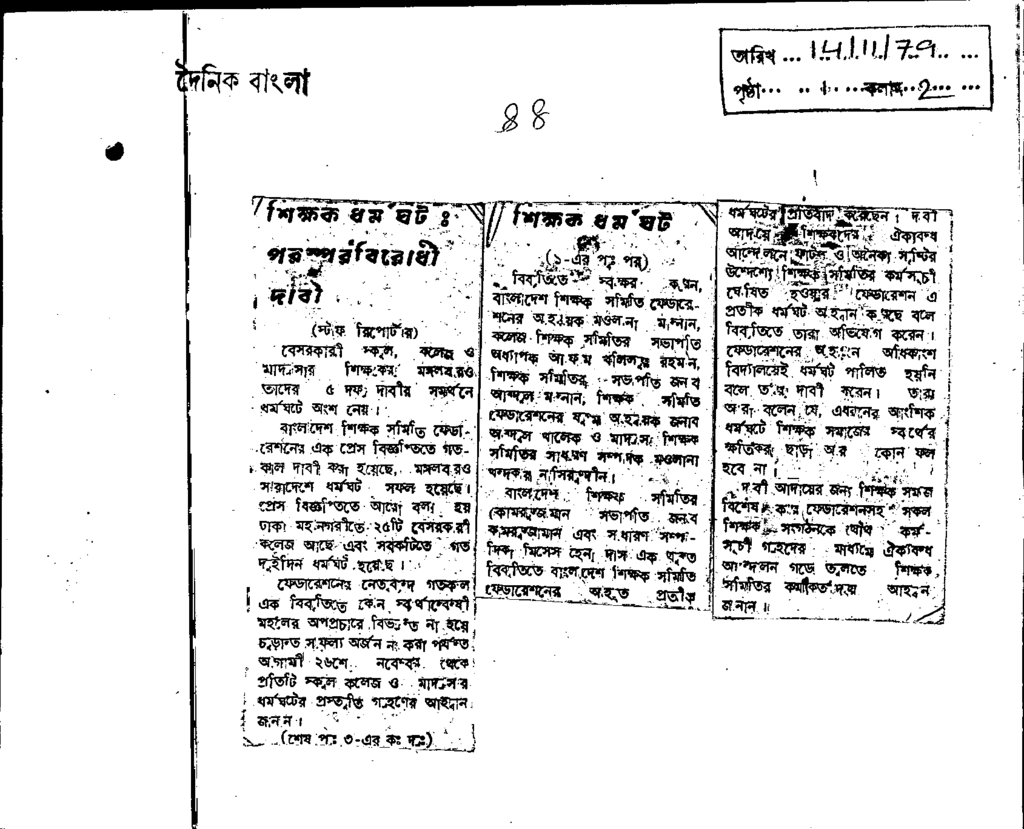 দৈনিক বাংলা
তারিখ ... 14/11/79 ... ...
পৃষ্ঠা ... .. 1 ... কলাম .. 2 ... ...
88
শিক্ষক ধর্মঘট ঃ
পরস্পরবিরোধী
দাবী
(স্টাফ রিপোর্টার)
বেসরকারী স্কুল, কলেজ ও
মাদ্রাসার শিক্ষকরা মঙ্গলবারও
তাদের ৫ দফা দাবীর সমর্থনে
ধর্মঘটে অংশ নেয়।
বাংলাদেশ শিক্ষক সমিতি ফেডা-
রেশনের এক প্রেস বিজ্ঞপ্তিতে গত-
কাল দাবী করা হয়েছে, মঙ্গলবারও
সারাদেশে ধর্মঘট সফল হয়েছে।
প্রেস বিজ্ঞপ্তিতে আরো বলা হয়
ঢাকা মহানগরীতে ২৫টি বেসরকারী
কলেজ আছে এবং সবকটিতে গত
দুইদিন ধর্মঘট হয়েছে।
ফেডারেশনের নেতৃবৃন্দ গতকাল
এক বিবৃতিতে কোন স্বার্থান্বেষী
মহলের অপপ্রচারে বিভ্রান্ত না হয়ে
চূড়ান্ত সাফল্য অর্জন না করা পর্যন্ত
আগামী ২৬শে নবেম্বর থেকে
প্রতিটি স্কুল কলেজ ও মাদ্রাসার
ধর্মঘটের প্রস্তুতি গ্রহণের আহ্বান
জানান।
(শেষ পৃঃ ৩-এর কঃ দ্রঃ)
শিক্ষক ধর্মঘট
(১-এর পৃঃ পর)
বিবৃতিতে স্বাক্ষর করেন,
বাংলাদেশ শিক্ষক সমিতি ফেডারে-
শনের আহ্বায়ক মওলানা মান্নান,
কলেজ শিক্ষক সমিতির সভাপতি
অধ্যাপক আ.ফ.ম খলিলুর রহমান,
শিক্ষক সমিতির সভাপতি জনাব
আব্দুল মান্নান, শিক্ষক সমিতি
ফেডারেশনের যুগ্ম আহ্বায়ক জনাব
আব্দুল খালেক ও মাদ্রাসা শিক্ষক
সমিতির সাধারণ সম্পাদক মওলানা
খন্দকার নাসিরুদ্দীন।
বাংলাদেশ শিক্ষক সমিতির
(কামরুজ্জামান সভাপতি জনাব
কামরুজ্জামান এবং সাধারণ সম্পা-
দিকা মিসেস হেনা দাস এক যুক্ত
বিবৃতিতে বাংলাদেশ শিক্ষক সমিতি
ফেডারেশনের আহূত প্রতীক
ধর্মঘটের প্রতিবাদ করেছেন। দাবী
আদায়ে শিক্ষকদের ঐক্যবদ্ধ
আন্দোলনে ফাটল ও অনৈক্য সৃষ্টির
উদ্দেশ্যে শিক্ষক সমিতির কর্মসূচী
ঘোষিত হওয়ার ফেডারেশন এ
প্রতীক ধর্মঘট আহ্বান করেছে বলে
বিবৃতিতে তারা অভিযোগ করেন।
ফেডারেশনের আহ্বানে অধিকাংশ
বিদ্যালয়েই ধর্মঘট পালিত হয়নি
বলে তারা দাবী করেন। তারা
আরা বলেন যে, এধরনের আংশিক
ধর্মঘটে শিক্ষক সমাজের স্বার্থের
ক্ষতিকর ছাড়া আর কোন ফল
হবে না।
দাবী আদায়ের জন্য শিক্ষক সমাজ
বিশেষ করে ফেডারেশনসহ সকল
শিক্ষক সংগঠনকে যৌথ কর্ম-
সূচী গ্রহণের মাধ্যমে ঐক্যবদ্ধ
আন্দোলন গড়ে তুলতে শিক্ষক
সমিতির কর্মকর্তাদ্বয় আহ্বান
জানান॥